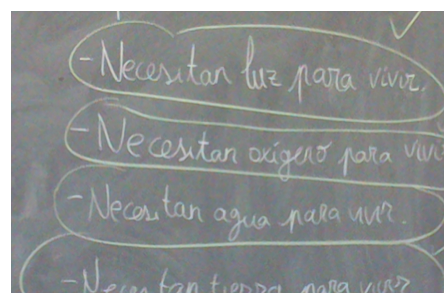 - Necesitan luz para vivir.
- Necesitan oxígeno para vivi
- Necesitan agua para vivir.
- Necesitan tierra para vivir